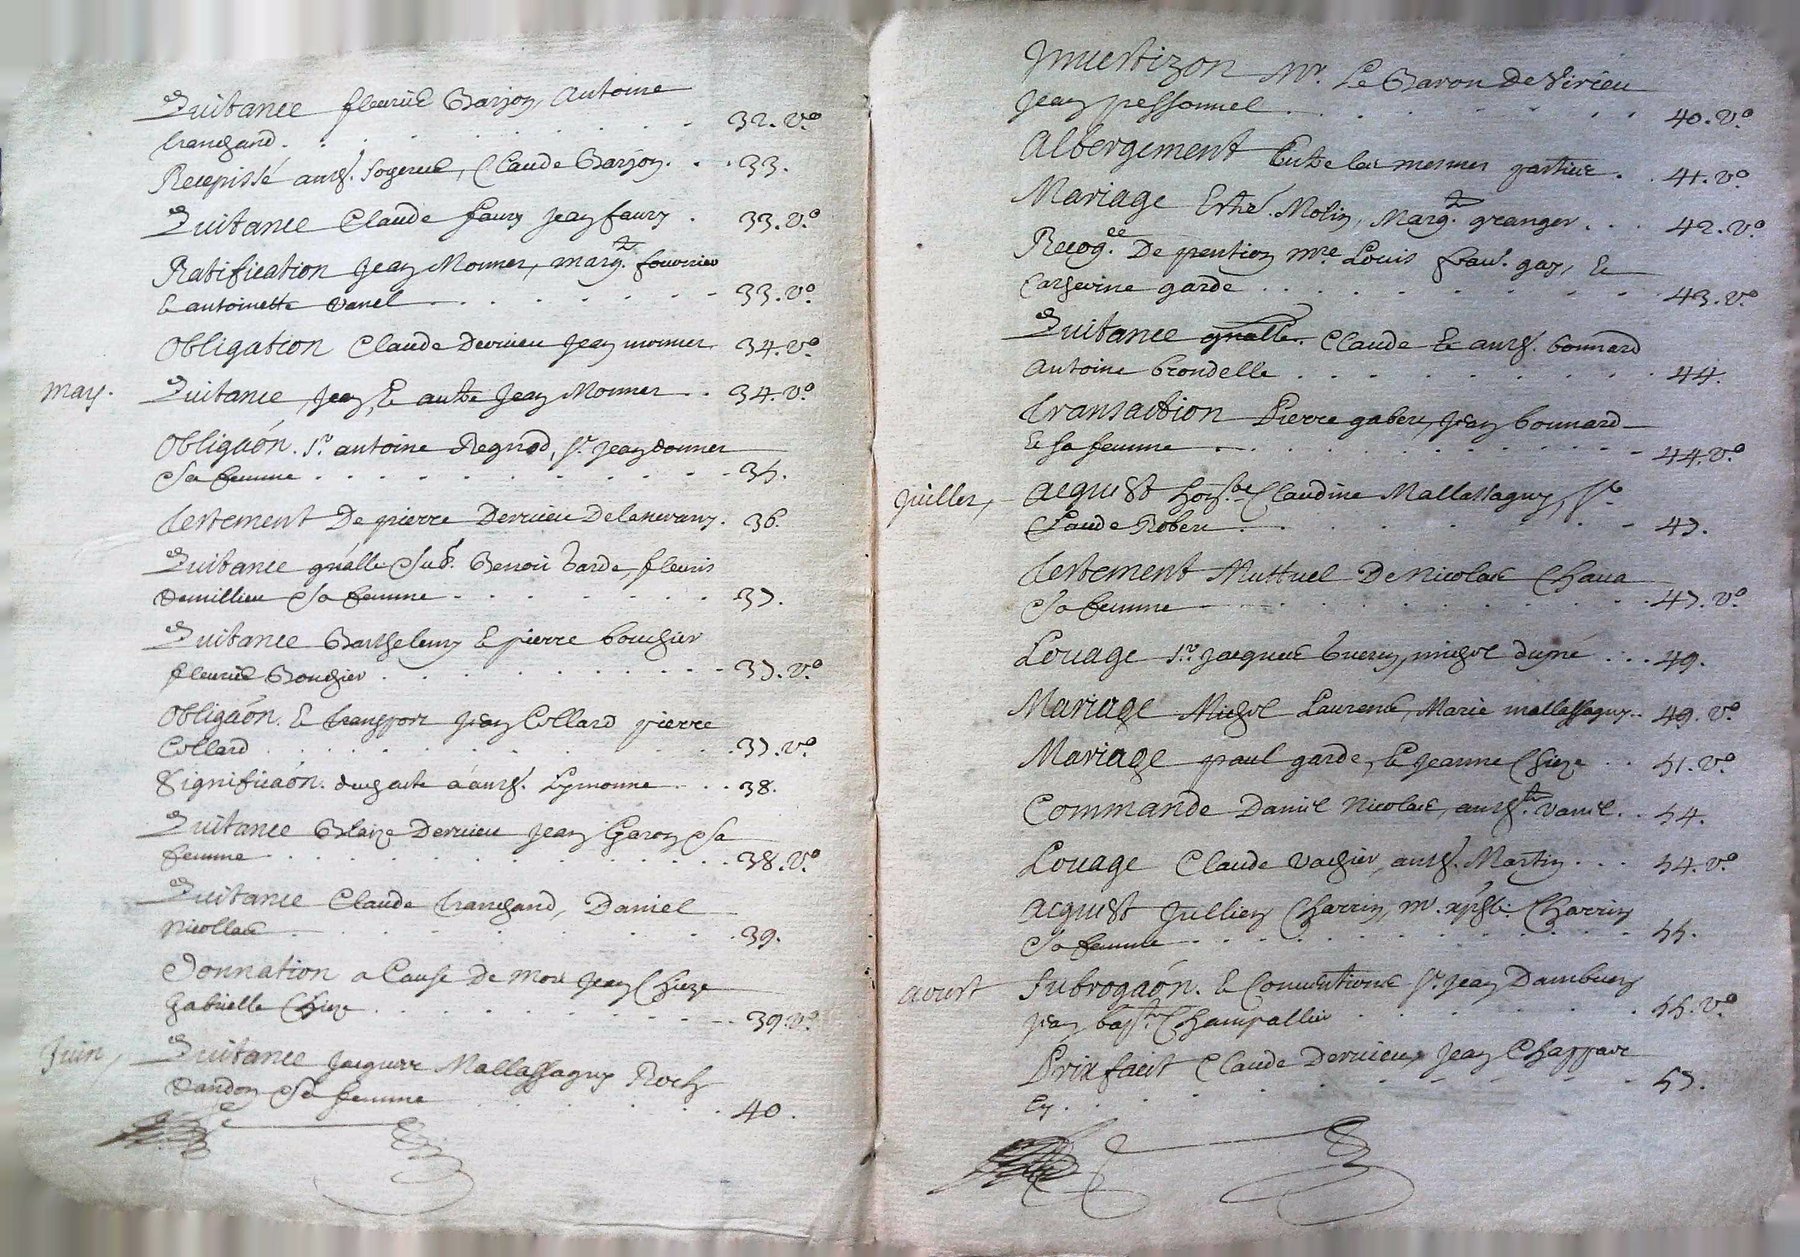 Quitance fleurie Barjon, Antoine
tranchand. 32. v.º
Recepissé anth. Claude Barjon. 33.
Quitance Claude faury Jean faury. 33. v.º
Ratification Jean Monnet, marg.te fournier
Et antoinette Vanel 33. v.º
Obligation Claude Derrieu Jean monnet 34. v.º
may. Quitance Jean, Et autre Jean Monnet 34. v.º
Obligaón. S.r antoine Regnod, S.r Jean
Sa femme 35.
Testement De pierre Derrieu 36.
Quitance gnálle Benoit Varde, fleurie
Demillieu Sa femme 37.
Quitance Barthelemy Et pierre bouchier
fleurie Bouchier 37. v.º
Obligaón. Et transport Jean Collard pierre
Collard 37. v.º
Significaón. d'acte à anth. Lymonne 38.
Quitance Blaize Derrieu Jean Garon Sa
femme 38. v.º
Quitance Claude tranchand, Daniel
Nicollas 39.
Donnation a Cause De mort Jean Chieze
Gabrielle Chieze 39. v.º
Juin, Quitance Jacques Mallassagny Roch
Dandon Sa femme 40.
Jnvestizon Mr. Le Baron De Virieu
Jean pessonnel 40. v.º
Albergement Entre les mesmes parties. 41. v.º
Mariage Molin, Marg.te granger 42. v.º
Recog.ce De pention m.re Louis gay, Et
Catherine garde 43. v.º
Quitance gnalle. Claude Et anth. bonnard
Antoine brondelle 44.
Transaction Pierre gabert, Jean bonnard
Et Sa femme 44. v.º
Juillet, Acquest Claudine Mallassagny,
Claude Robert 47.
Testement Muttuel De Nicolas Chava
Sa femme 47. v.º
Louage S.r Jacques michel 49.
Mariage Michel Laurent, Marie mallassagny 49. v.º
Mariage paul garde, Et Jeanne Chieze 51. v.º
Commande Daniel Nicolas, anth. Vanel 54.
Louage Claude Vachier, anth. Martin 54. v.º
Acquest Jullien Charrin, Charrin
Sa femme 55.
Aoust Subrogaón. Et Conventions S.r Jean Dambuent
Jean bap.te Champallier 55. v.º
Prix fait Claude Derrieu, Jean Chappare
Ey. 57.